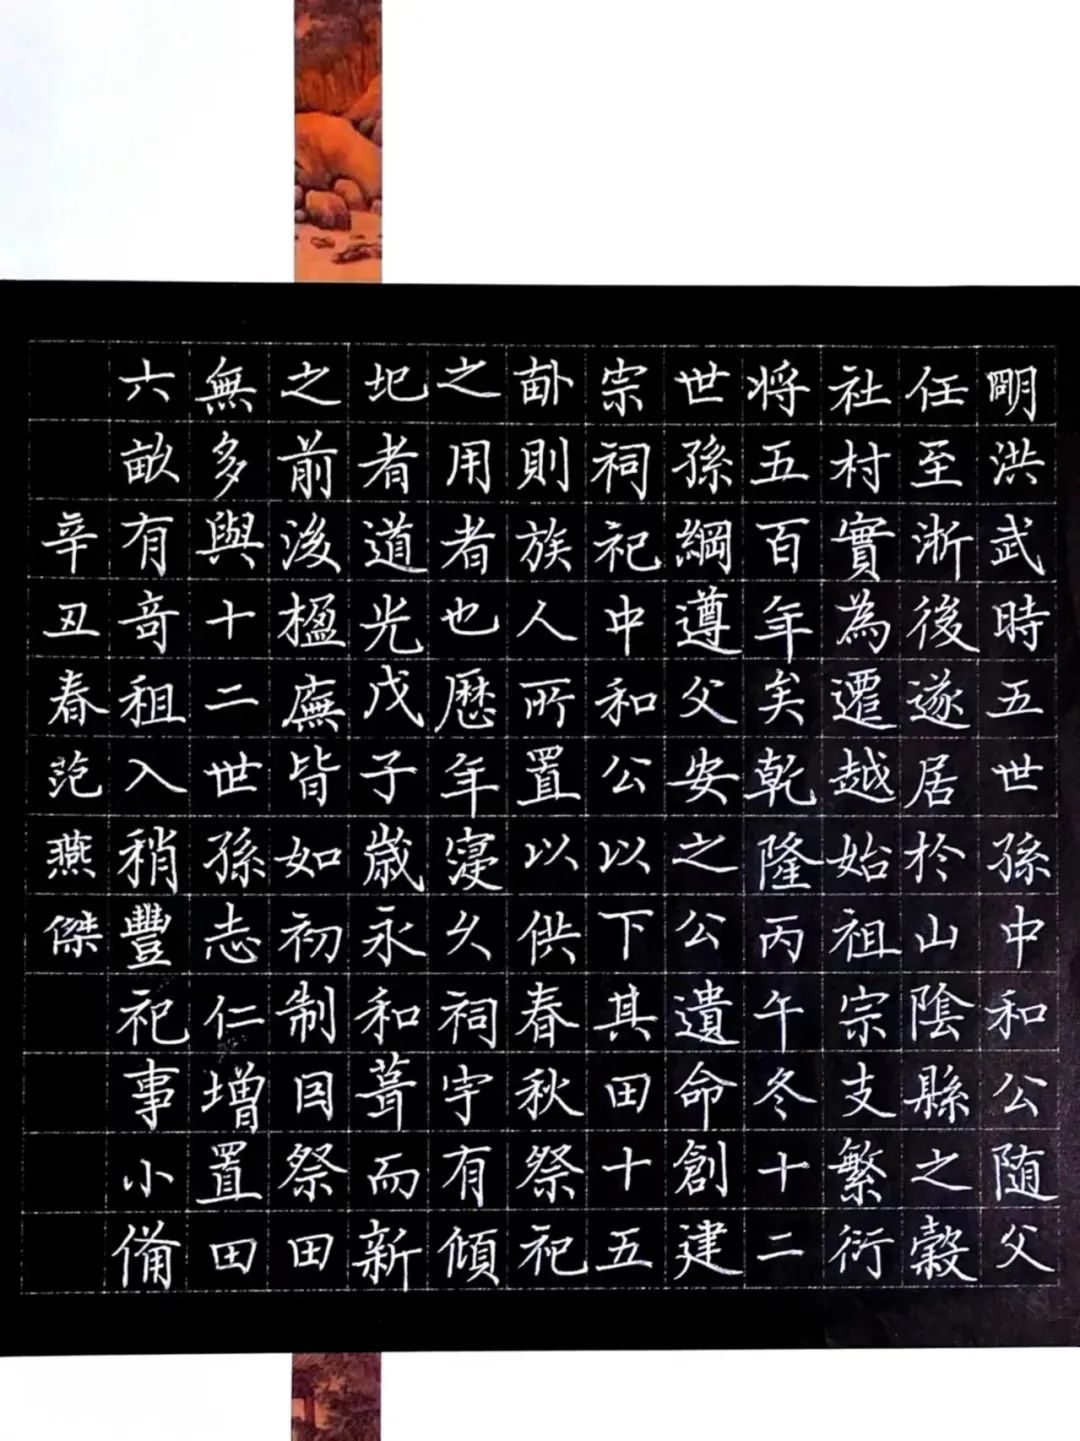 明洪武時五世孫中和公随父
任至浙後遂居於山陰縣之穀
社村實為遷越始祖宗支繁衍
将五百年矣乾隆丙午冬十二
世孫綱遵父安之公遺命創建
宗祠祀中和公以下其田十五
畝則族人所置以供春秋祭祀
之用者也歷年寖久祠宇有傾
圮者道光戊子歲永和葺而新
之前後楹廡皆如初制因祭田
無多與十二世孫志仁增置田
六畝有奇租入稍豐祀事小備
辛丑春范燕傑